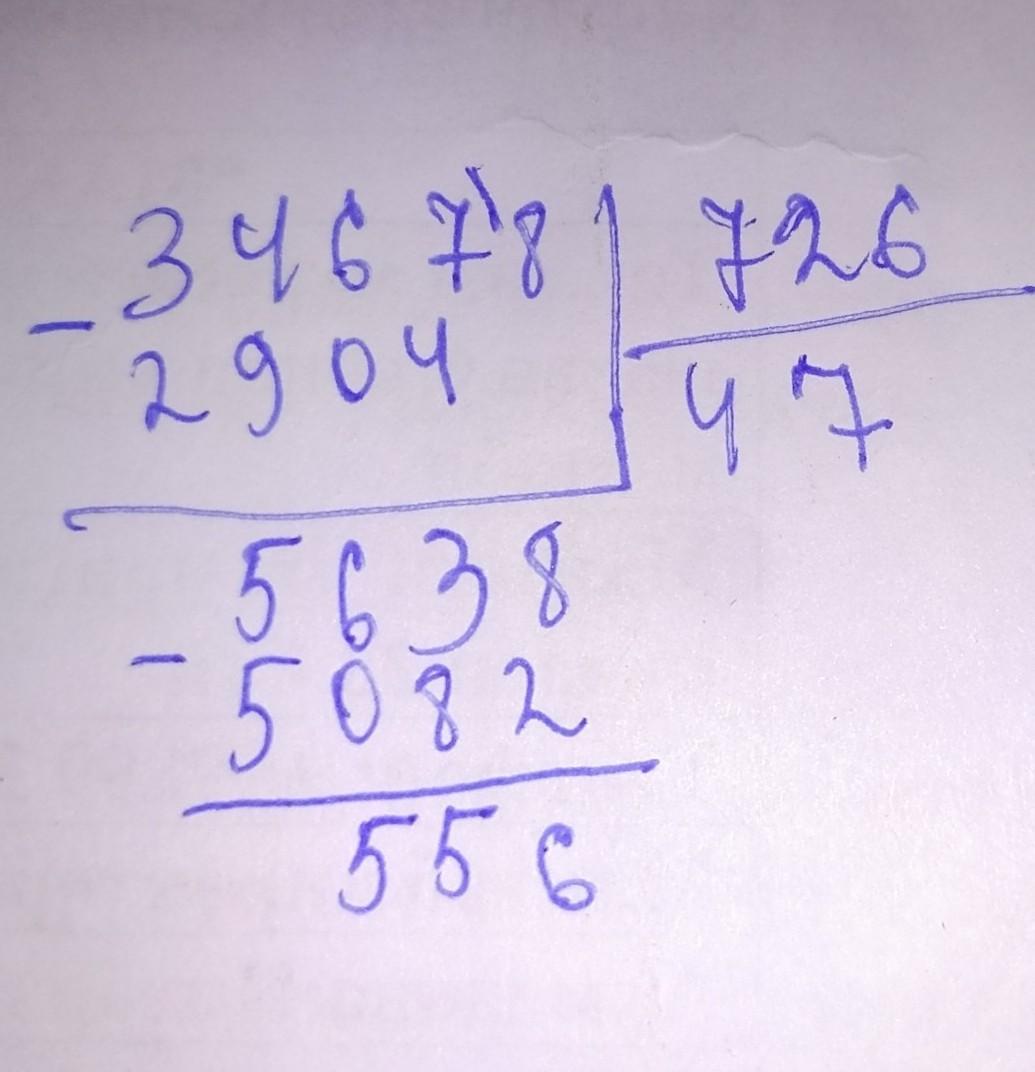 34678 726
- 2904 47
5638
- 5082
556